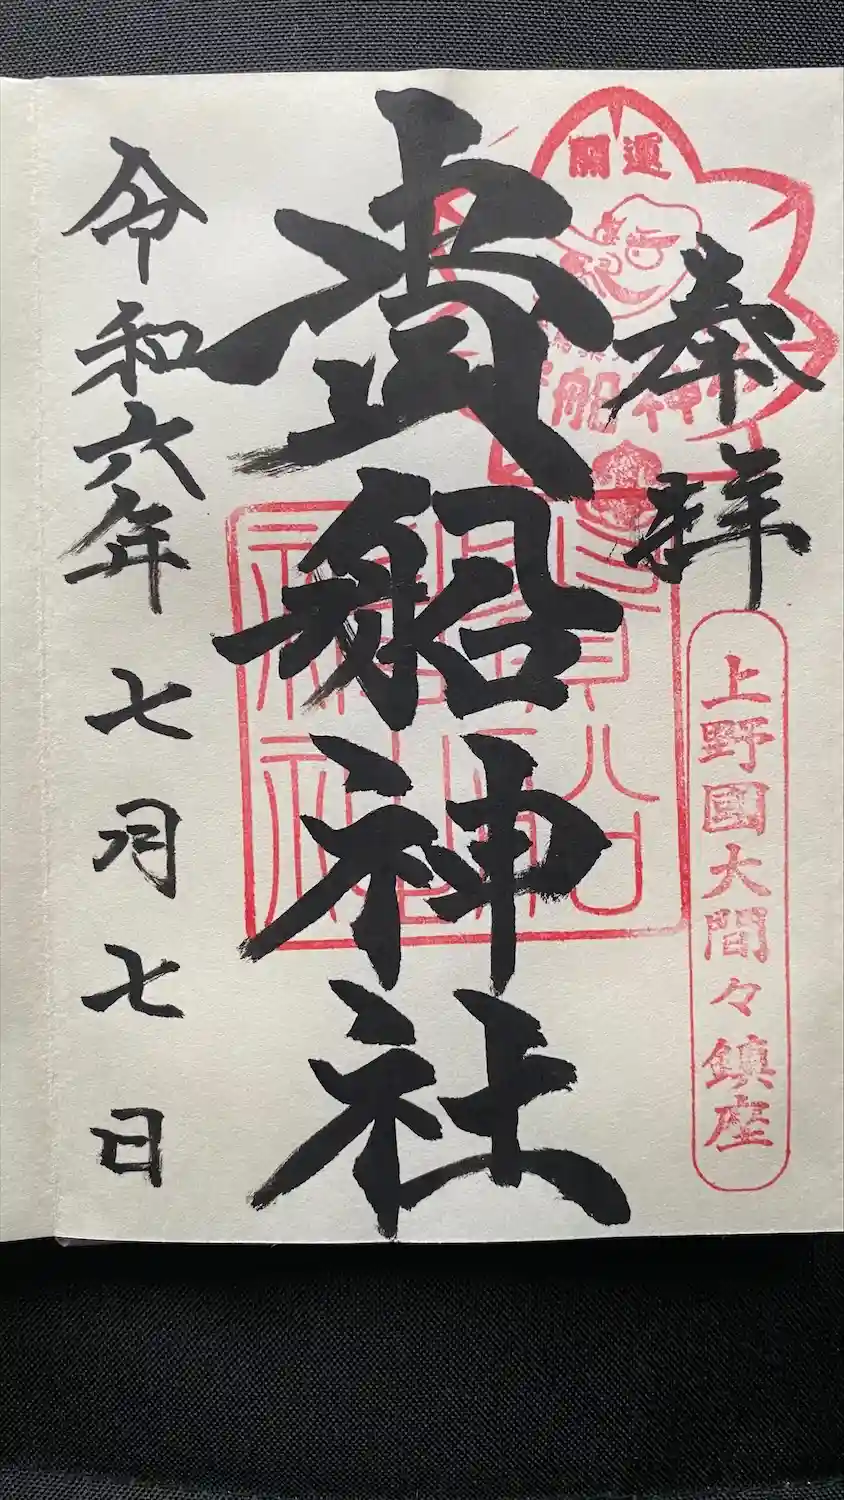 奉拝
開運
船神
上野國大間々鎮座
貴船神社
令和六年七月七日